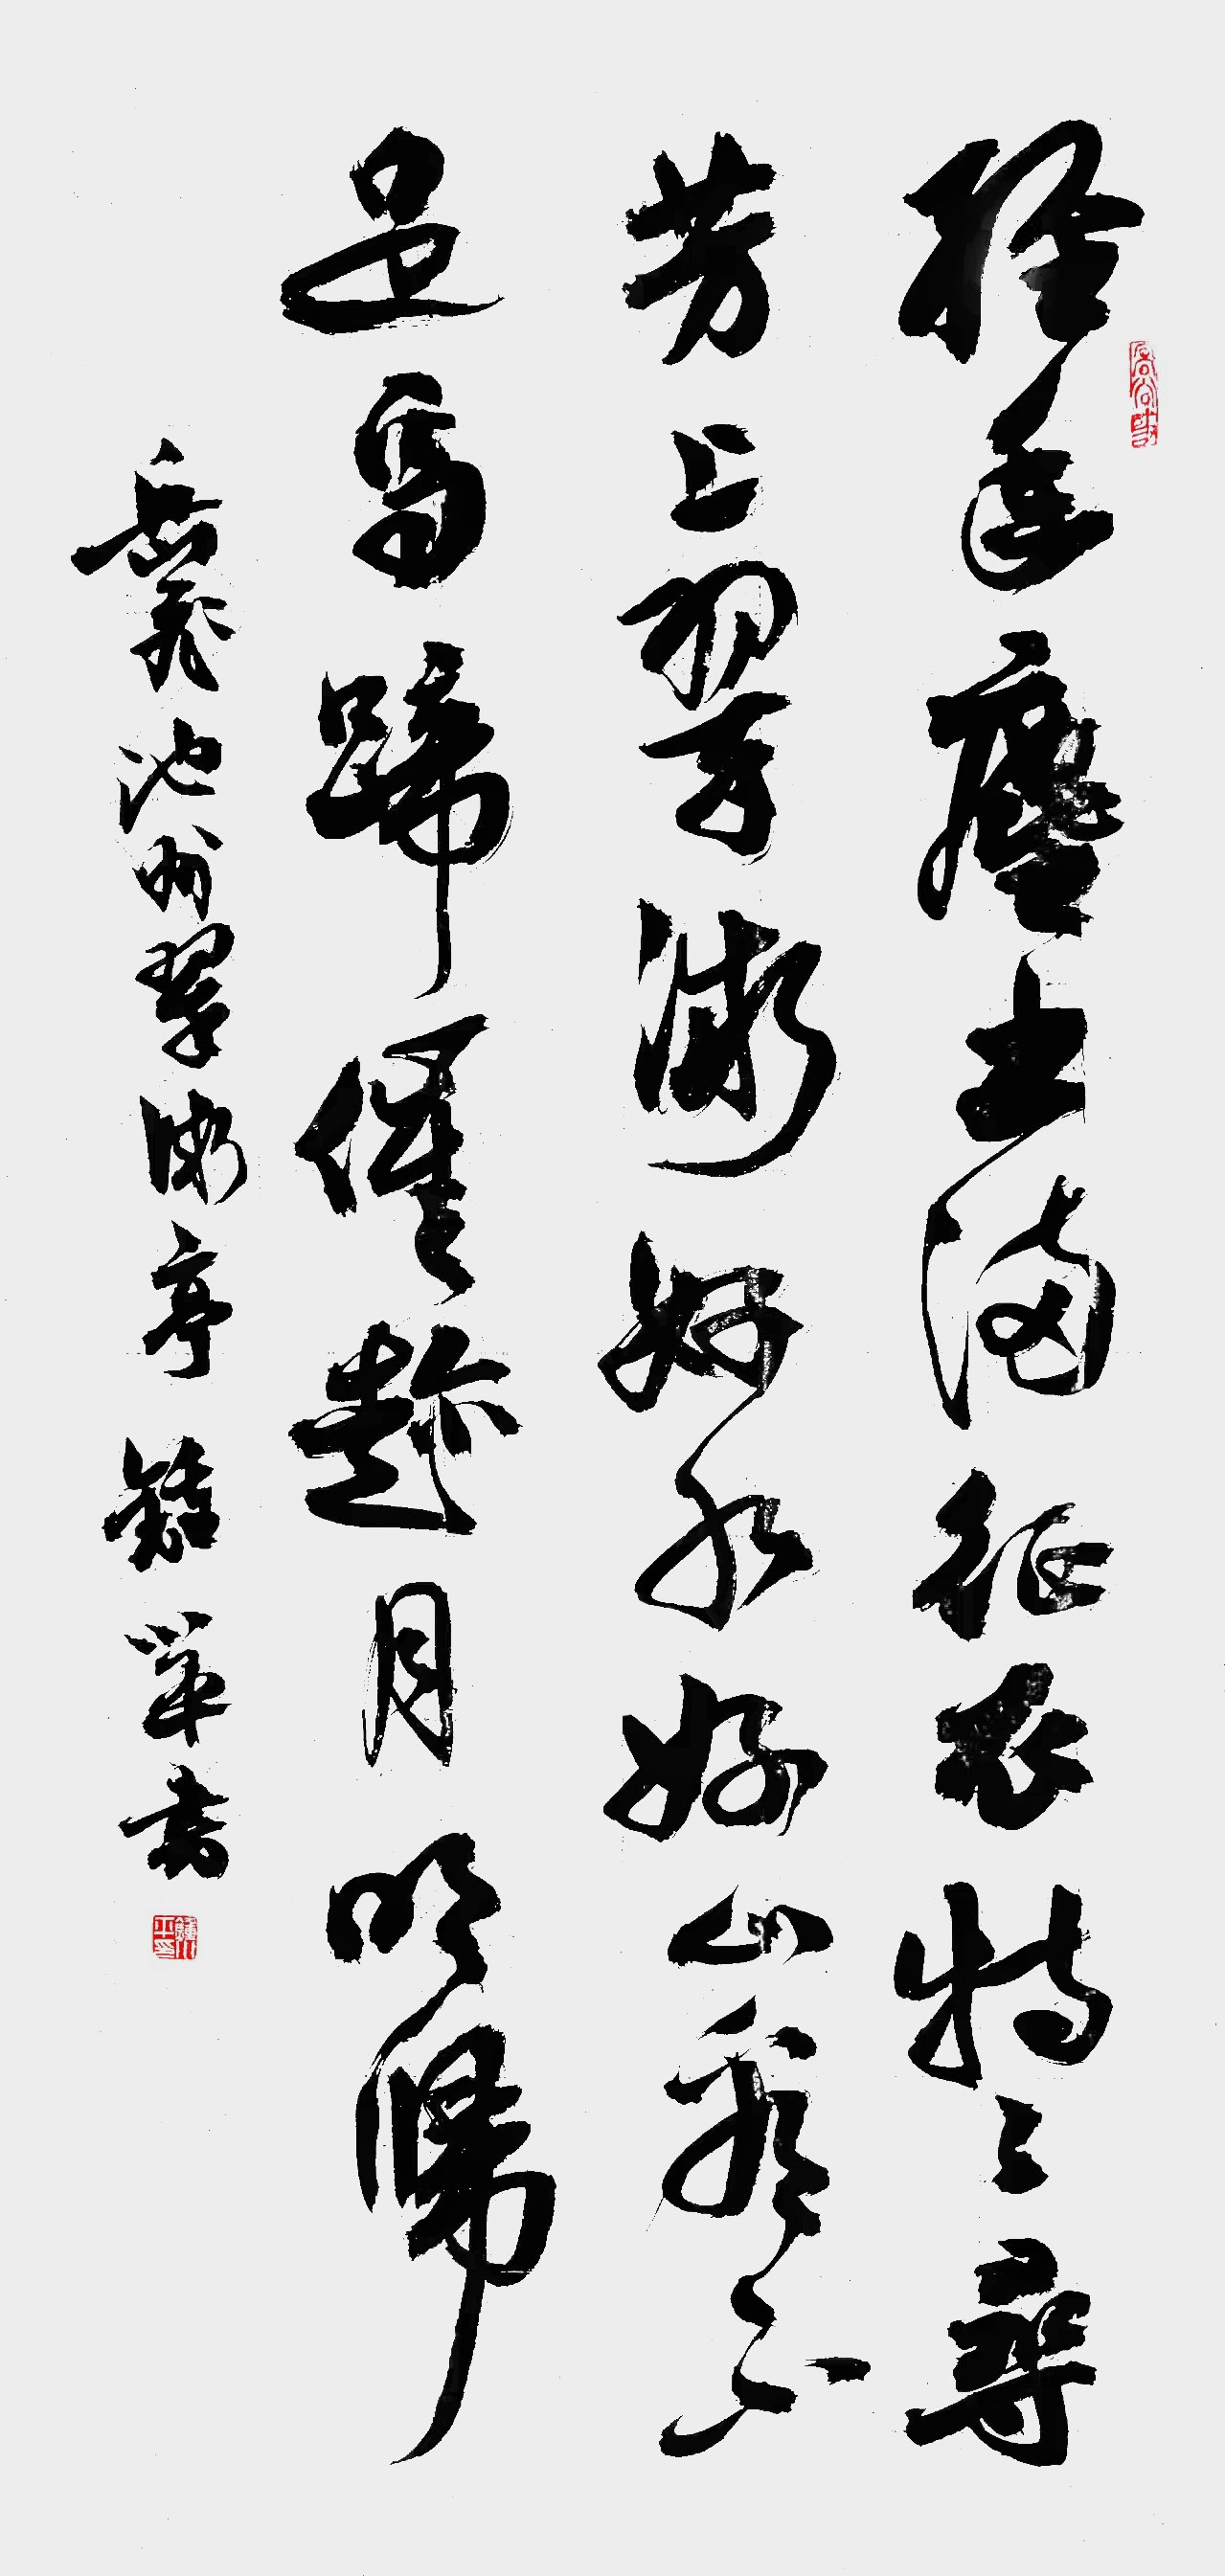 經年塵土滿征衣特々尋
芳上翠微好水好山看不
足馬蹄催趁月明歸
岳飛池州翠微亭 鍾小平書
鍾小平印